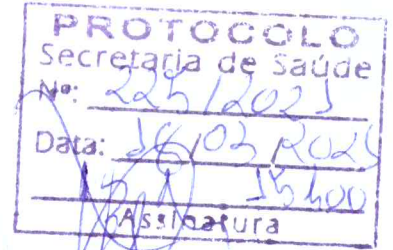 PROTOCOLO
Secretaria de Saúde
Nº: 225/2021
Data: 16/03/2021
15h00
Assinatura